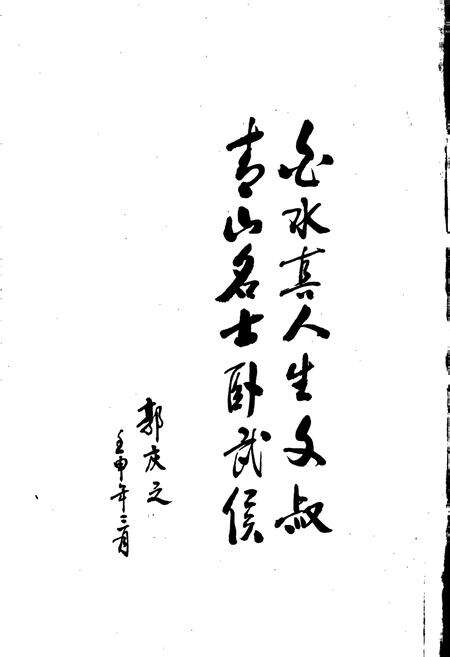 白水真人生文叔
青山名士卧武侯
郭庆之
壬申年三月